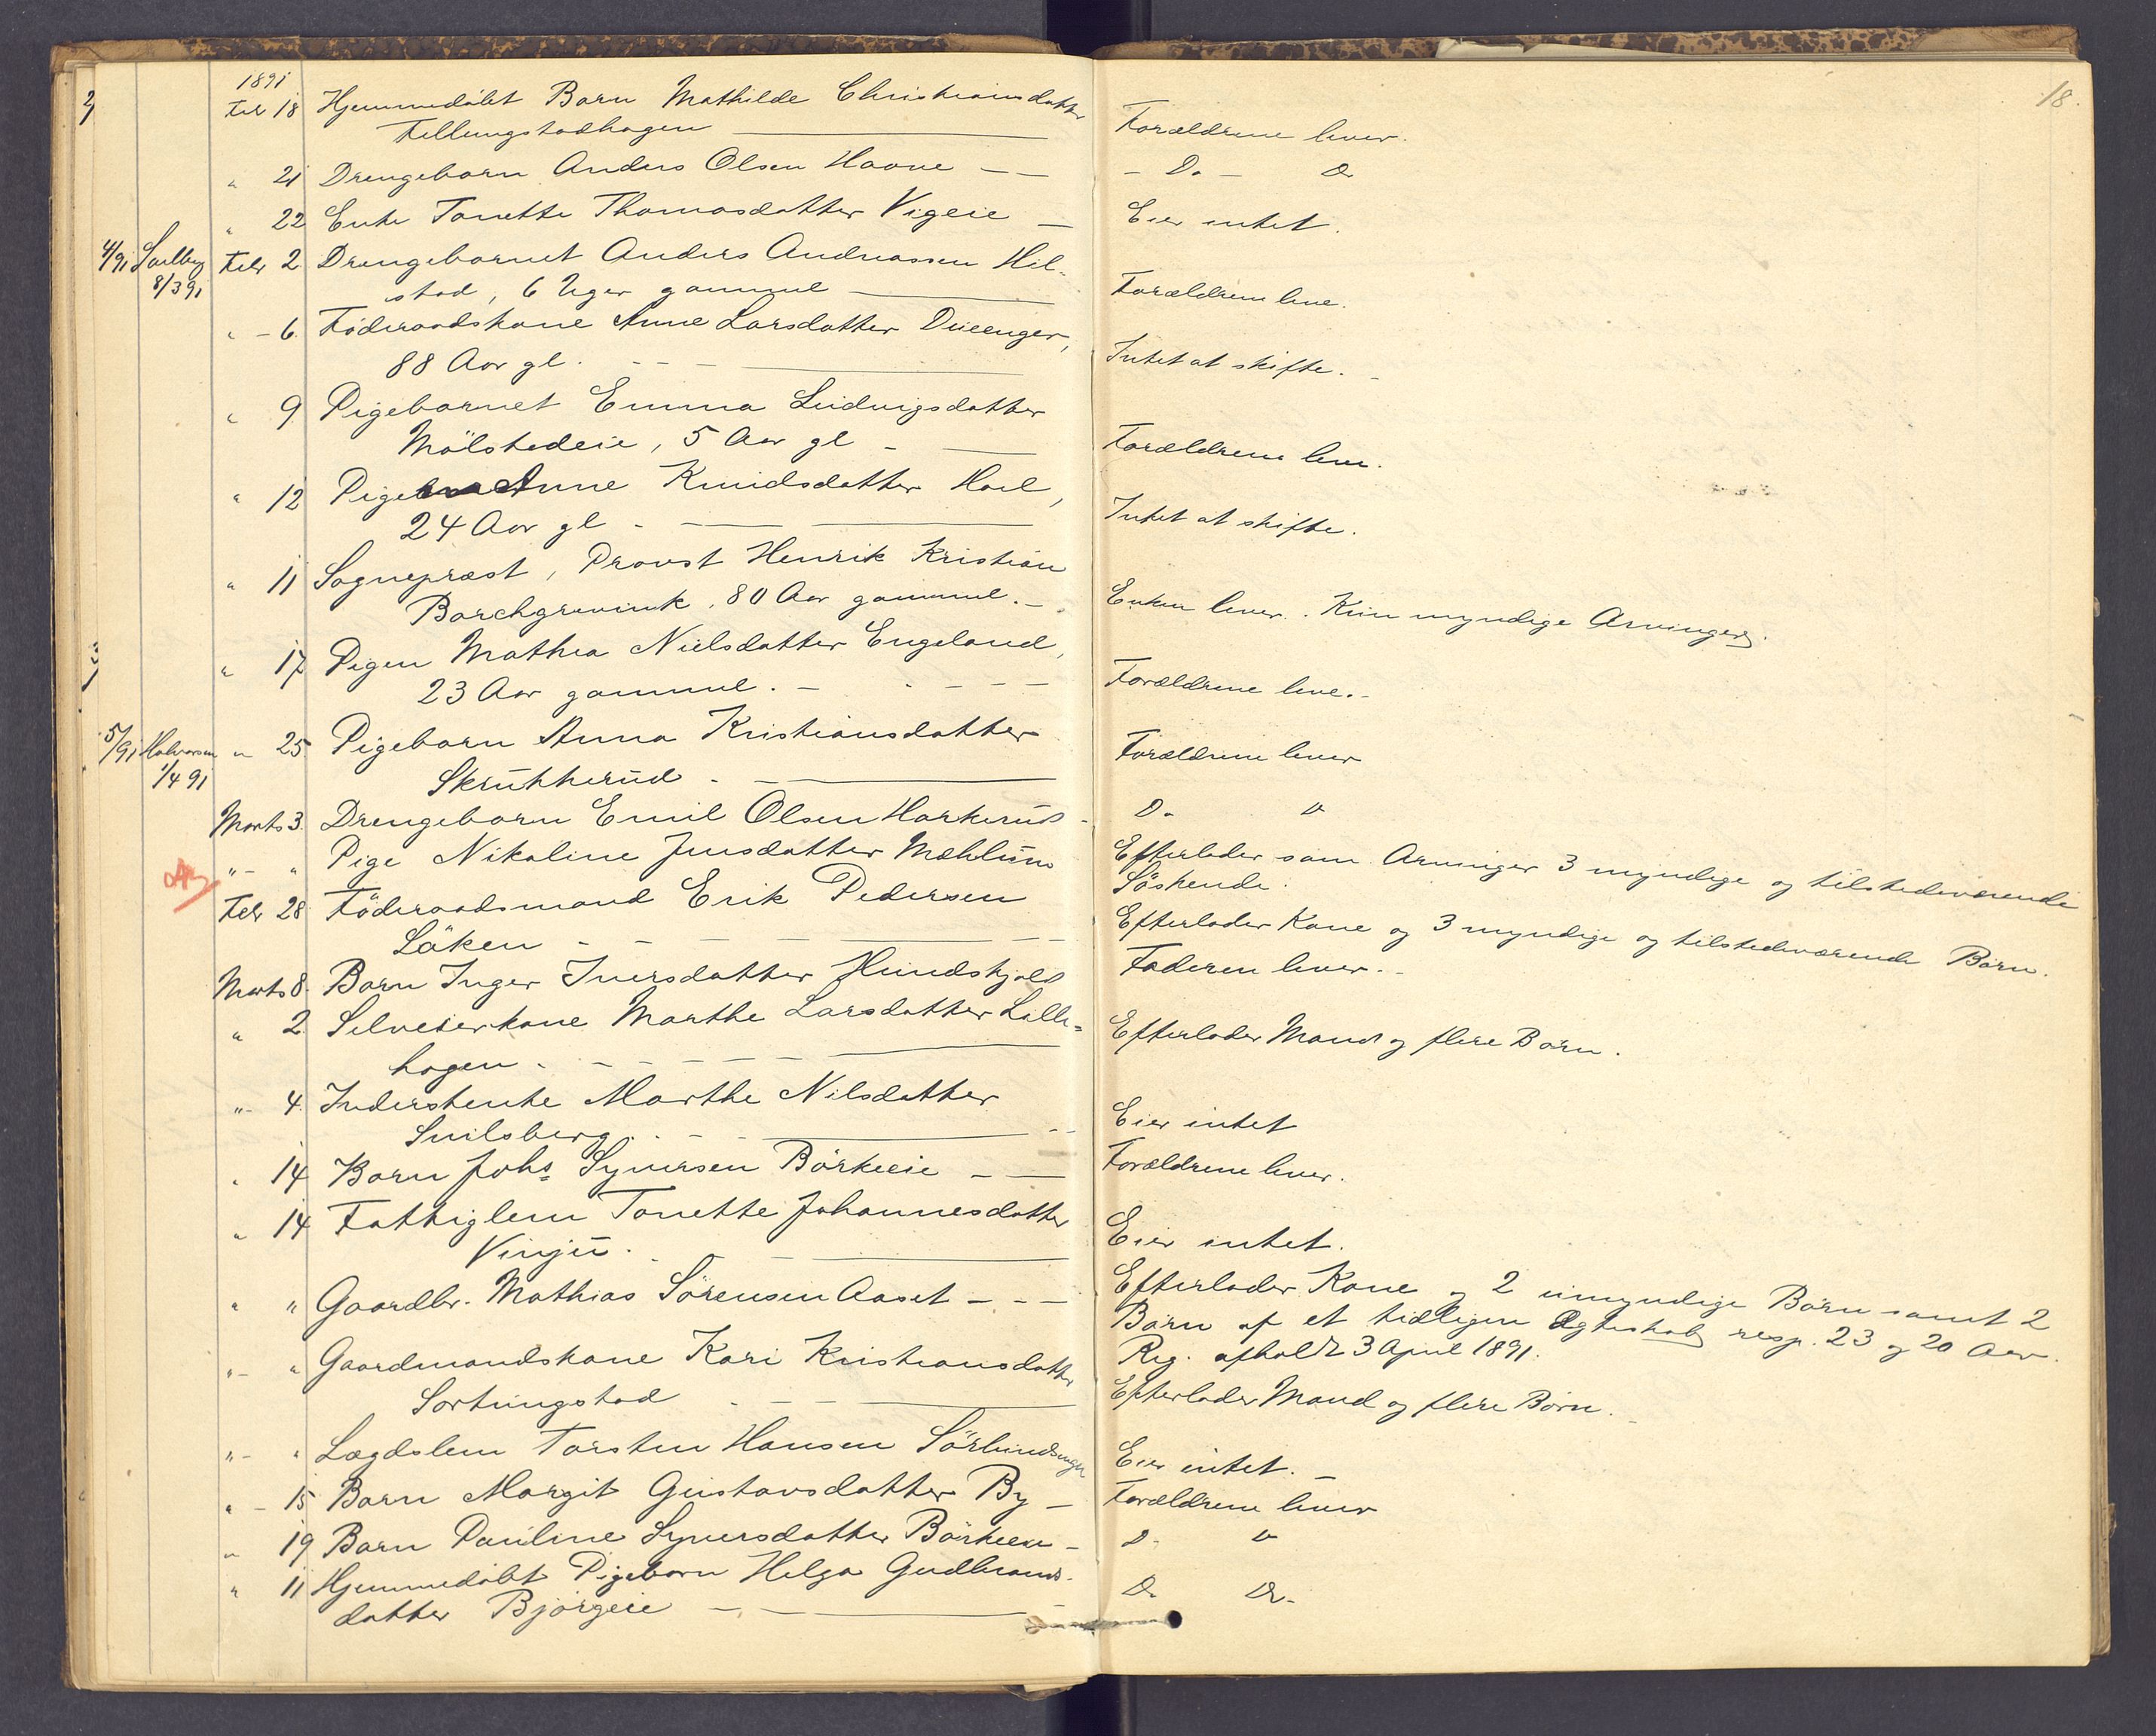 18.
1891
Febr 18 Hjemmedøbt Barn Mathilde Christiansdatter
Fellungstadhagen
Forældrene lever.
" 21 Drengebarn Anders Olsen Haave
- Do - Do
" 22 Enke Tonette Thomasdatter Vigeie
Eier intet.
4/91 Solberg Febr 2 Drengebarnet Anders Andreassen Hil-
8/3 91 stad, 6 Uger gammel
Forældrene leve.
" - 6. Föderaadskone Anne Larsdatter Dueenger,
88 Aar gl.
Intet at skifte.
" 9 Pigebarnet Emma Ludvigsdatter
Mölstadeie, 5 Aar gl
Forældrene leve.
" 12 Pige Anne Knudsdatter Hoel,
24 Aar gl
Intet at skifte.
" 11 Sogneprest, Provst Henrik Kristian
Borchgrevink, 80 Aar gammel.
Enken lever. Kun myndige Arvinger.
" 17 Pigen Mathea Nielsdatter Engeland,
23 Aar gammel.
Forældrene leve.
5/91 Halvorsen " 25 Pigebarn Anna Kristiansdatter
1/4 91 Skrukkerud
Forældrene lever
Marts 3. Drengebarn Emil Olsen Harkerud
Do Do
" - " Pige Nikoline Jensdatter Mæhlum
Efterlader som Arvinger 3 myndige og tilstedeværende
Söskende.
Febr 28 Föderaadsmand Erik Pedersen
Löken
Efterlader Kone og 3 myndige og tilstedeværende Børn.
Marts 8. Barn Inger Iversdatter Hundskjold
Faderen lever.
" 2 Selveierkone Marthe Larsdatter Lille-
hagen
Efterlader Mand og flere Børn.
" 4. Inderstenke Marthe Nilsdatter
Snilsberg
Eier intet
" 14 Barn Johs Syversen Börkeeie
Forældrene lever.
" 14 Fattiglem Tonette Johannesdatter
Vinju.
Eier intet.
" " Gaardbr. Mathias Sörensen Aaset
Efterlader Kone og 2 umyndige Børn samt 2
Børn af et tidligere Ægteskab resp. 23 og 20 Aar.
Reg. afholdt 3 April 1891.
" - " Gaardmandskone Kari Kristiansdatter
Sortungstad
Efterlader Mand og flere Börn.
" - " Lægdslem Torsten Hansen Sörlundengen
Eier intet.
" - 15 Barn Margit Gustavsdatter By
Forældrene lever
" 19 Barn Pauline Syversdatter Börkeeie
Do Do
" 11 Hjemmedöbt Pigebarn Helga Gudbrands-
datter Bjørgeie
Do Do